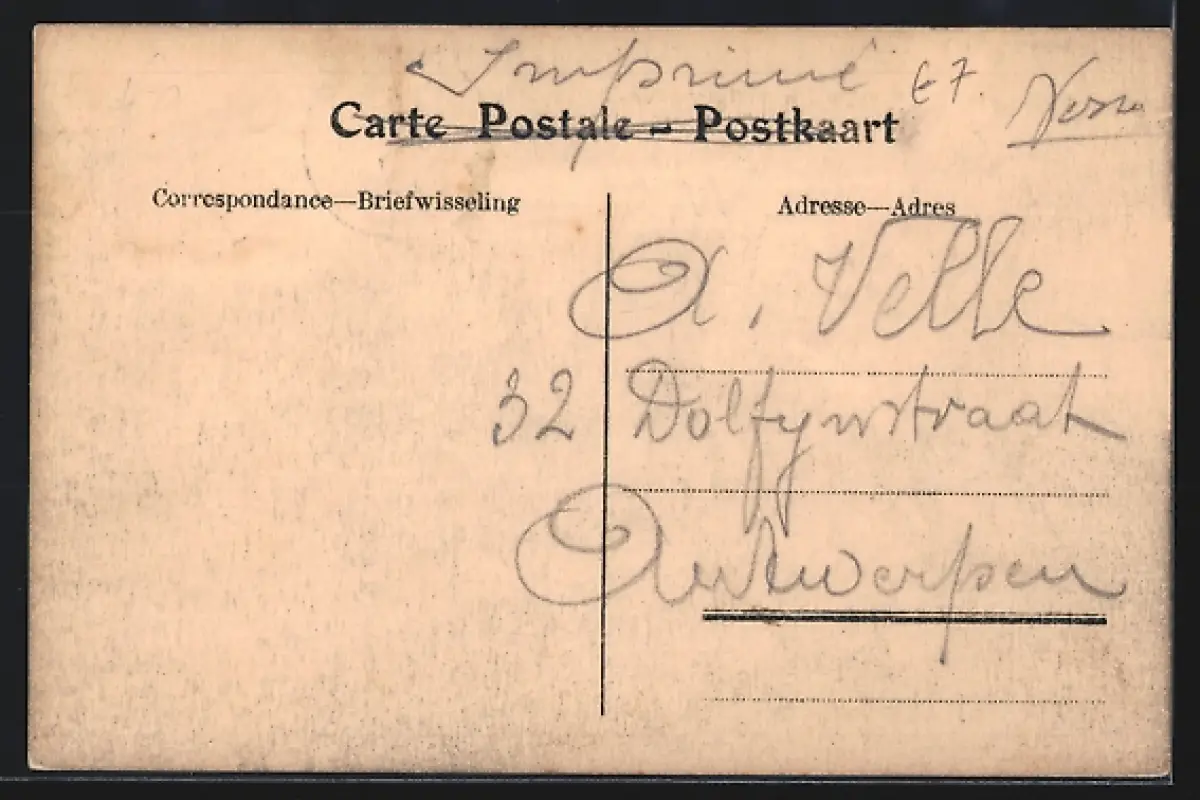 Imprimé
Carte Postale - Postkaart
Correspondance—Briefwisseling
Adresse—Adres
A. Velle
32 Dolfynstraat
Antwerpen